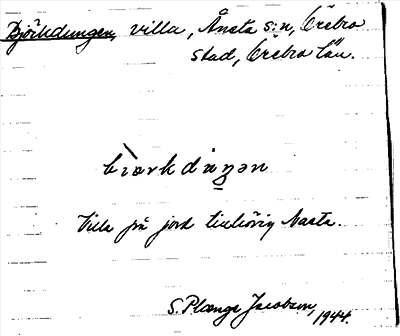 Björkdungen, villa, Ånsta s:n, Örebro
stad, Örebro län.
Villa på jord tillhörig Nasta.
S. Plænge Jacobson, 1944.